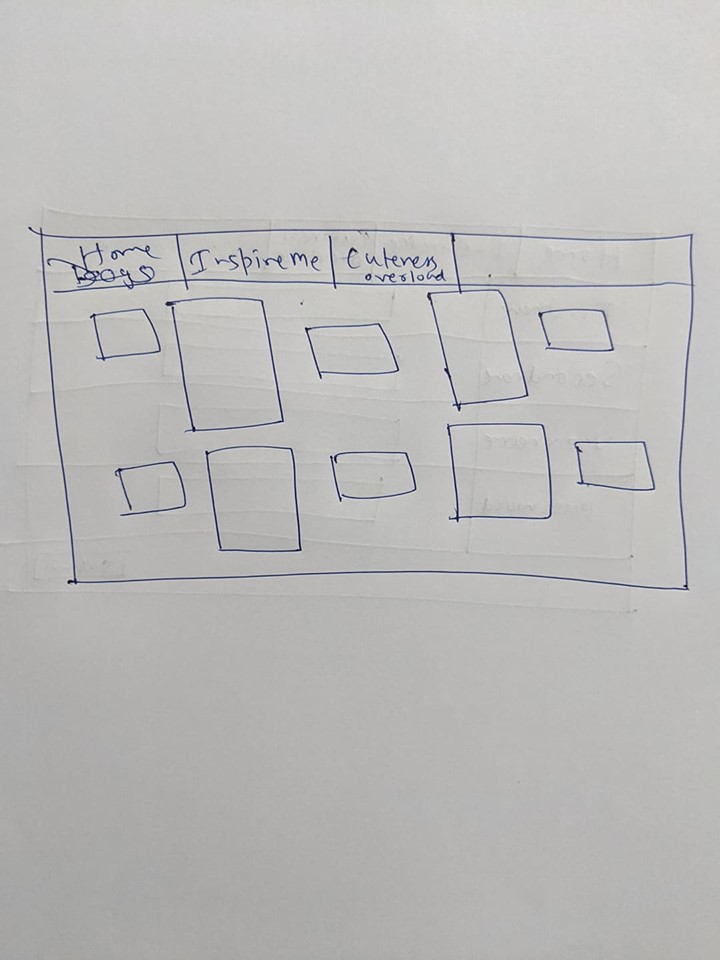 Home
Inspire me
Cuteness
overload